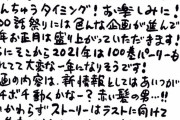 んちゅうタイミング!お楽しみに!
00話祭りには色んな企画が並んで
年お正月は盛り上がっていただきます!
らにそこから2021年は100巻パーリーも
れてて大変な一年になりそうです!
画の内容は、新情報としてはあいつが
チボチ動くかなー?赤い髪の男…!!
かわらずストーリーはラストに向けて